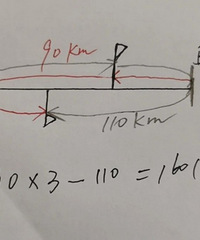 90 Km
110 Km
0 × 3 - 110 = 160